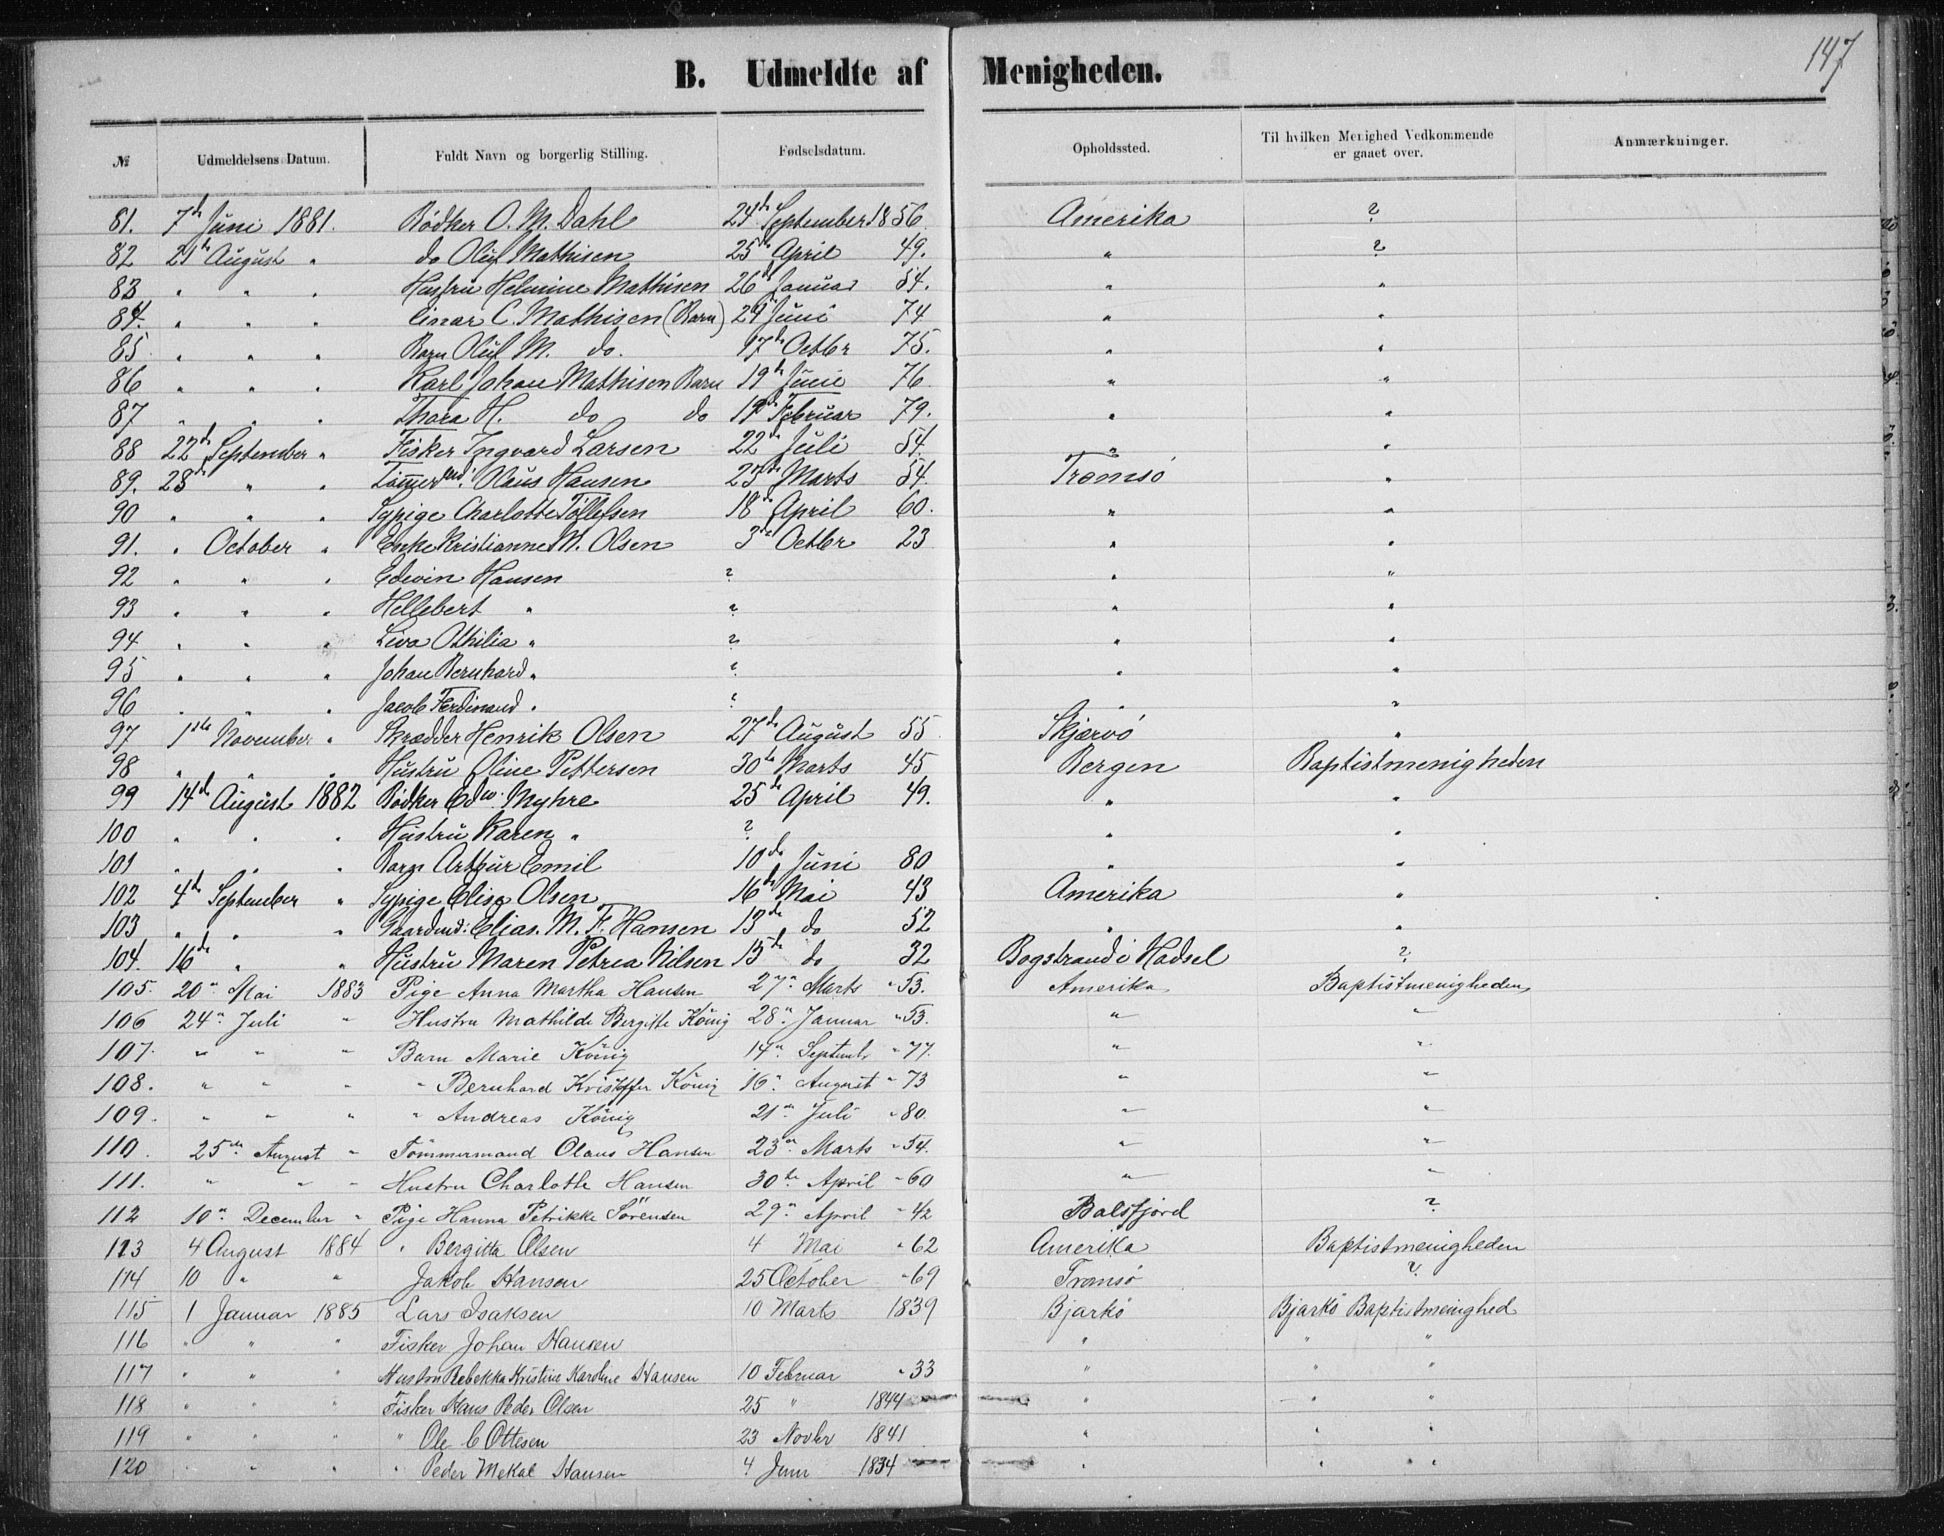 147
B. Udmeldte af Menigheden.
№ Udmeldelsens Datum. Fuldt Navn og borgerlig Stilling. Fødselsdatum. Opholdssted. Til hvilken Menighed Vedkommende er gaaet over. Anmærkninger.
81. 7de Juni 1881. Bødker O. M. Dahl 24de September 1856. Amerika ?
82 21de August " do Oluf Mathisen 25de April 49. " ?
83 " " " Hustru Helmine Mathisen 26de Januar 54. " "
84. " " " Einar C. Mathisen (Barn) 29 Juni 74 " "
85 " " " Barn Oluf M. do. 17de Octbr 75. " "
86 " " " Karl Johan Mathisen Barn 19de Juni 76. " "
87 " " " Thora H. do do 19de Februar 79. " "
88 22de September " Fisker Ingvard Larsen 22de Juli 54. " "
89. 28de " " Tömermd. Olaus Hansen 23de Marts 54. Tromsö "
90 " " " Sypige Charlotte Töllefsen 18de April 60. " "
91. " October " Enke Kristianne M. Olsen 3de Octbr 23 " "
92 " " " Edvin Hansen ? " "
93 " " " Hellebert " ? " "
94 " " " Liva Othilia " ? " "
95 " " " Johan Bernhard " ? " "
96 " " " Jacob Ferdinand " ? " "
97 1ste November " Skrædder Henrik Olsen 27de August 55. Skjærvö "
98 " " " Hustru Oline Pettersen 30te Marts 45 Bergen Baptistmenigheden
99 14de August 1882 Bødker Edw. Myhre 25de April 49. " "
100 " " " Hustru Karen " ? " "
101 " " " Barn Arthur Emil 10de Juni 80 " "
102 4de September " Sypige Elise Olsen 16de Mai 43 Amerika "
103 " " " Gaardmd: Elias. M. F. Hansen 13de do 52 " "
104. 16de " " Hustru Maren Petrea Nilsen 15de do 32 Bogstrand i Hadsel ?
105. 20de Mai 1883 Pige Anna Martha Hansen 27de Marts "53. Amerika Baptistmenigheden
106 24de Juli " Hustru Mathilde Bergitte König 28de Januar "53. " "
107. " " " Barn Marie König 14de Septembr "77. " "
108. " " " " Bernhard Kristoffer König 16de August "73 " "
109. " " " " Andreas König 21de Juli "80. " "
110. 25de August " Tömmermand Olaus Hansen 23de Marts "54. " "
111. " " " Hustru Charlotte Hansen 30te April "60 " "
112 10de December " Pige Hanna Petrikke Sörensen 29de April "42 Balsfjord ?
113 4 August 1884 " Bergitta Olsen 4 Mai "62 Amerika Baptistmenigheden
114 10 " " Jakob Hansen 25 October "69 Tromsö ?
115 1 Januar 1885 Lars Isaksen 10 Marts 1839 Bjarkö Bjarkö Baptistmenighed
116 " " " Fisker Johan Hansen " " "
117 " " " Hustru Rebekka Kristine Karoline Hansen 10 Februar "33 " " "
118 " " " Fisker Hans Peder Olsen 25 " 1844 " " "
119 " " " " Ole C Ottesen 23 Novbr 1841 " " "
120 " " " " Peder Mekal Hansen 4 Juni 1834 " " "